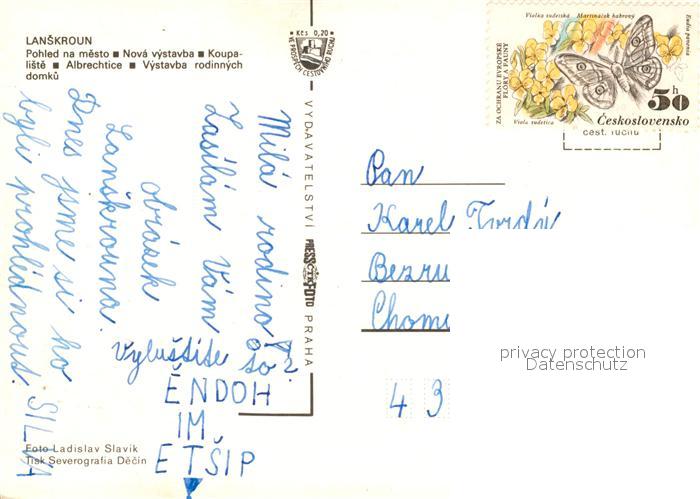 LANŠKROUN
Pohled na město ■ Nová výstavba ■ Koupa-
liště ■ Albrechtice ■ Výstavba rodinných
domků
Kčs 0,20
VE PROSPĚCH CESTOVNÍHO RUCHU
Violka sudetská Martináček habrový
Eudia pavonia
ZA OCHRANU EVROPSKÉ
FLÓRY A FAUNY
Viola sudetica
50 h
Československo
cest. ruchu
VYDAVATELSTVÍ PRESSFOTO PRAHA
Milá rodino!
Zasílám Vám
obrázek
Lanškrouna.
Dnes jsme si ho
byli prohlédnout.
SILVA
Vyluštíte to?
ĚNDOH
IM
ETŠIP
Pan
Karel Tvrdý
Bezru
Chomu
4 3
privacy protection
Datenschutz
Foto Ladislav Slavík
Tisk Severografia Děčín